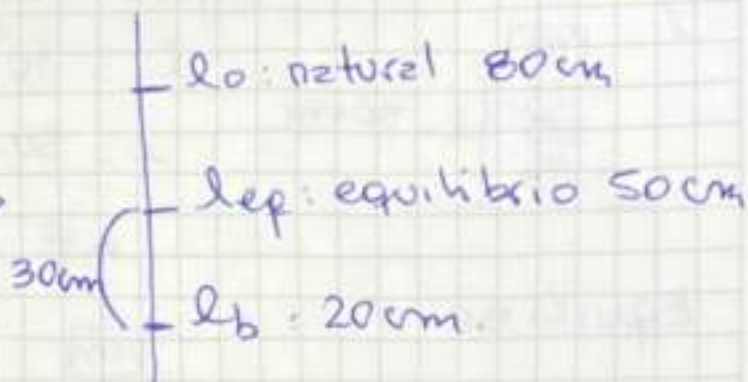 lo: natural 80cm
leq: equilibrio 50cm
30cm
lb: 20cm.